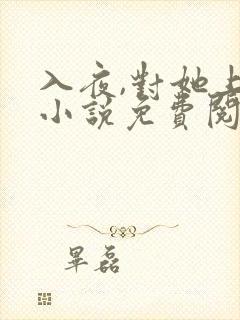 入夜,對她上
小說免費閱
畢磊